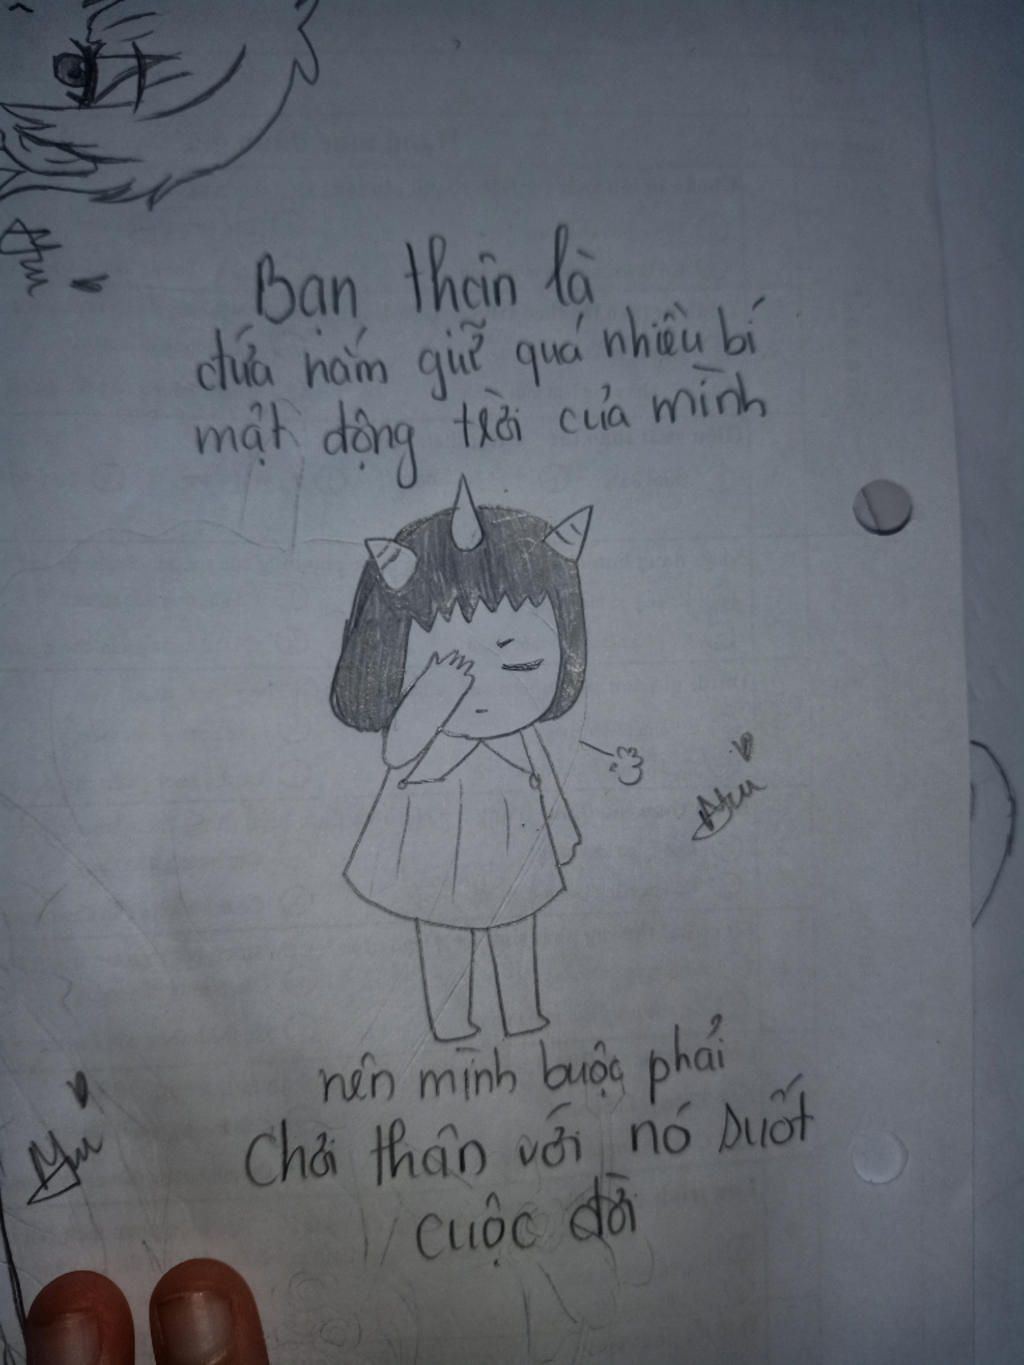 Bạn thân là
đứa nắm giữ quá nhiều bí
mật động trời của mình
nên mình buộc phải
Chơi thân với nó suốt
cuộc đời